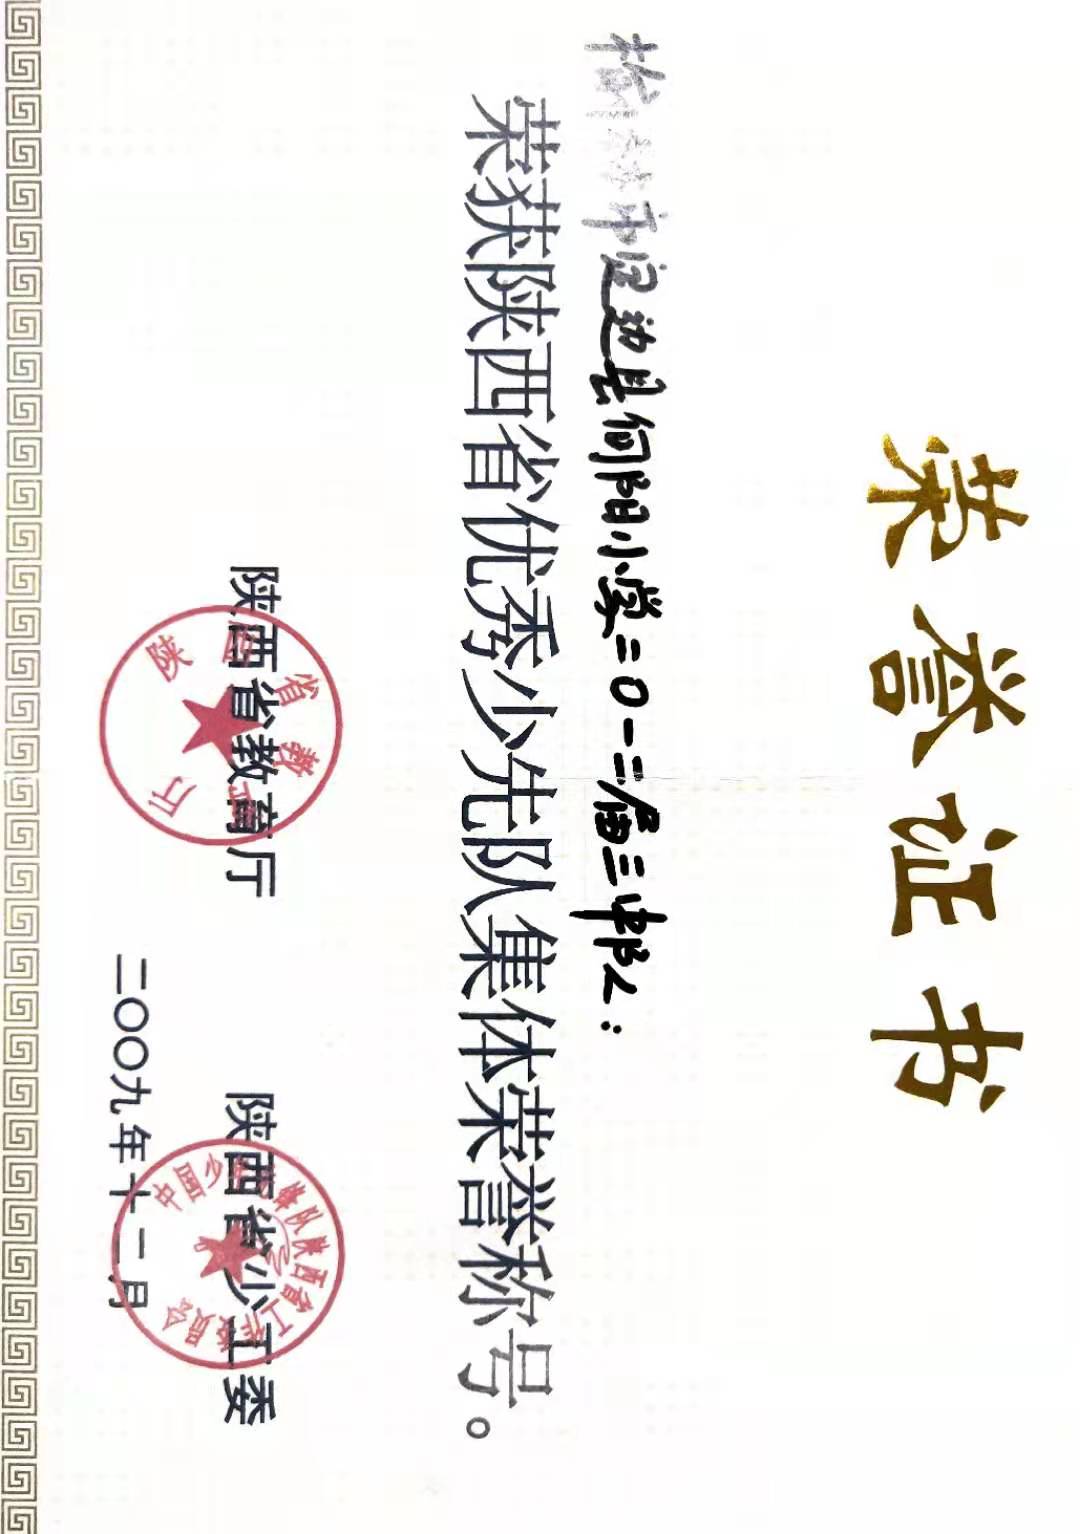 荣誉证书
榆林市定边县向阳小学二〇一二届三中队：
荣获陕西省优秀少先队集体荣誉称号。
陕西省教育厅 陕西省少工委
陕西省教育厅
中国少年先锋队陕西省工作委员会
二〇〇九年十二月